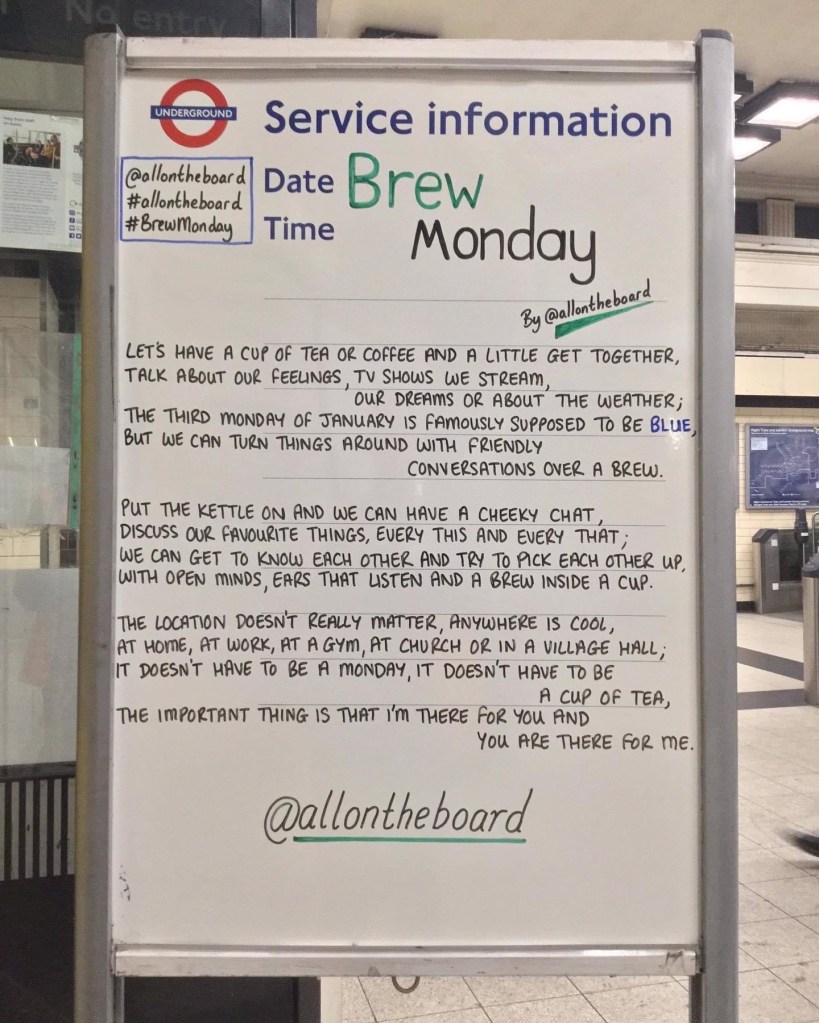 No entry
UNDERGROUND
Service information
@allontheboard
#allontheboard
#BrewMonday
Date Brew
Time Monday
By @allontheboard
LET'S HAVE A CUP OF TEA OR COFFEE AND A LITTLE GET TOGETHER,
TALK ABOUT OUR FEELINGS, TV SHOWS WE STREAM,
OUR DREAMS OR ABOUT THE WEATHER;
THE THIRD MONDAY OF JANUARY IS FAMOUSLY SUPPOSED TO BE BLUE,
BUT WE CAN TURN THINGS AROUND WITH FRIENDLY
CONVERSATIONS OVER A BREW.
PUT THE KETTLE ON AND WE CAN HAVE A CHEEKY CHAT,
DISCUSS OUR FAVOURITE THINGS, EVERY THIS AND EVERY THAT;
WE CAN GET TO KNOW EACH OTHER AND TRY TO PICK EACH OTHER UP,
WITH OPEN MINDS, EARS THAT LISTEN AND A BREW INSIDE A CUP.
THE LOCATION DOESN'T REALLY MATTER, ANYWHERE IS COOL,
AT HOME, AT WORK, AT A GYM, AT CHURCH OR IN A VILLAGE HALL;
IT DOESN'T HAVE TO BE A MONDAY, IT DOESN'T HAVE TO BE
A CUP OF TEA,
THE IMPORTANT THING IS THAT I'M THERE FOR YOU AND
YOU ARE THERE FOR ME.
@allontheboard